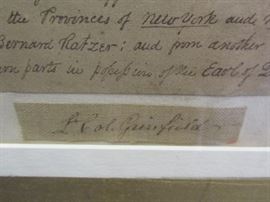 the Provinces of New York and
Bernard Ratzer; and from another
parts in possession of the Earl of
Lt Col. Grinfield